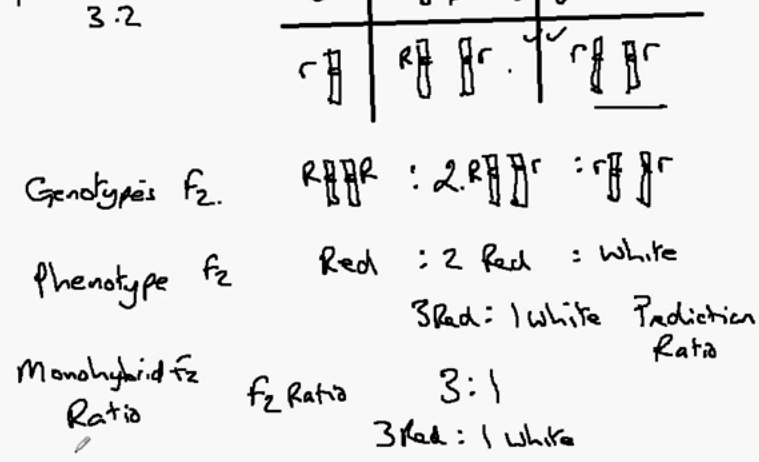 3.2
r R r . r r
Genotypes f2. R R : 2. R r : r r
Phenotype f2 Red : 2 Red : White
3Red : 1 white Prediction
Ratio
Monohybrid f2
Ratio
f2 Ratio 3 : 1
3 Red : 1 white